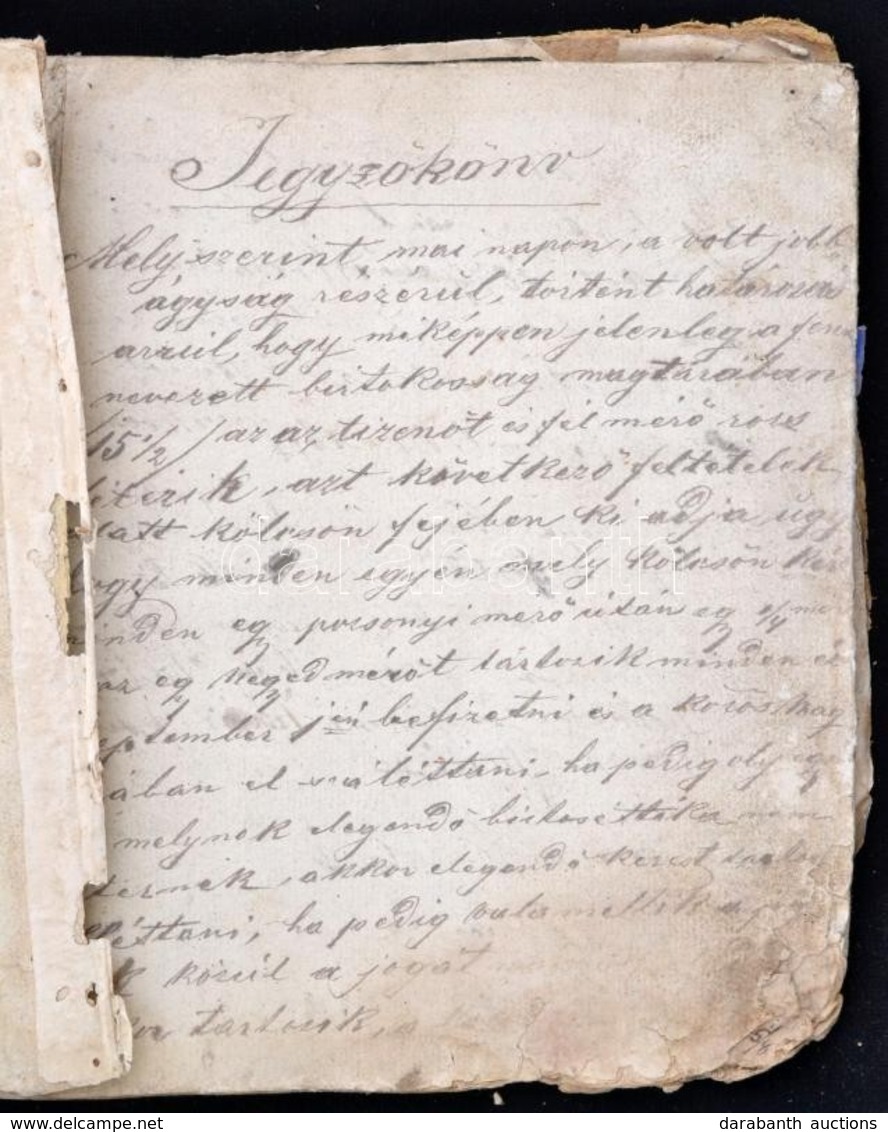 Jegyzőkönv
Mely szerint, mai napon, a volt jobb
ágyság részérül, történt határozat
arrúl, hogy miképpen jelenleg a fenn
nevezett birtokosság magtárában
15 1/2 / az az, tizenöt és fél mérő ros
létezik, azt következő feltételek
latt kölcsön fejében ki adja úgy
hogy minden egyén mely kölcsön kér
minden egy posonyi mérő után egy 1/4 mér
az egy negyed mérőt tartozik minden év
eptember 1jén befizetni és a közös mag
ában el száléttani, ha pedig oly egy
melynek elegendő bistoséttéka nem
ternék, akkor elegendő kezest tartoz
létteni, ha pedig valamellik a jog
k közül a jogát
or tartozik, a
darabanth
darabanth auctions